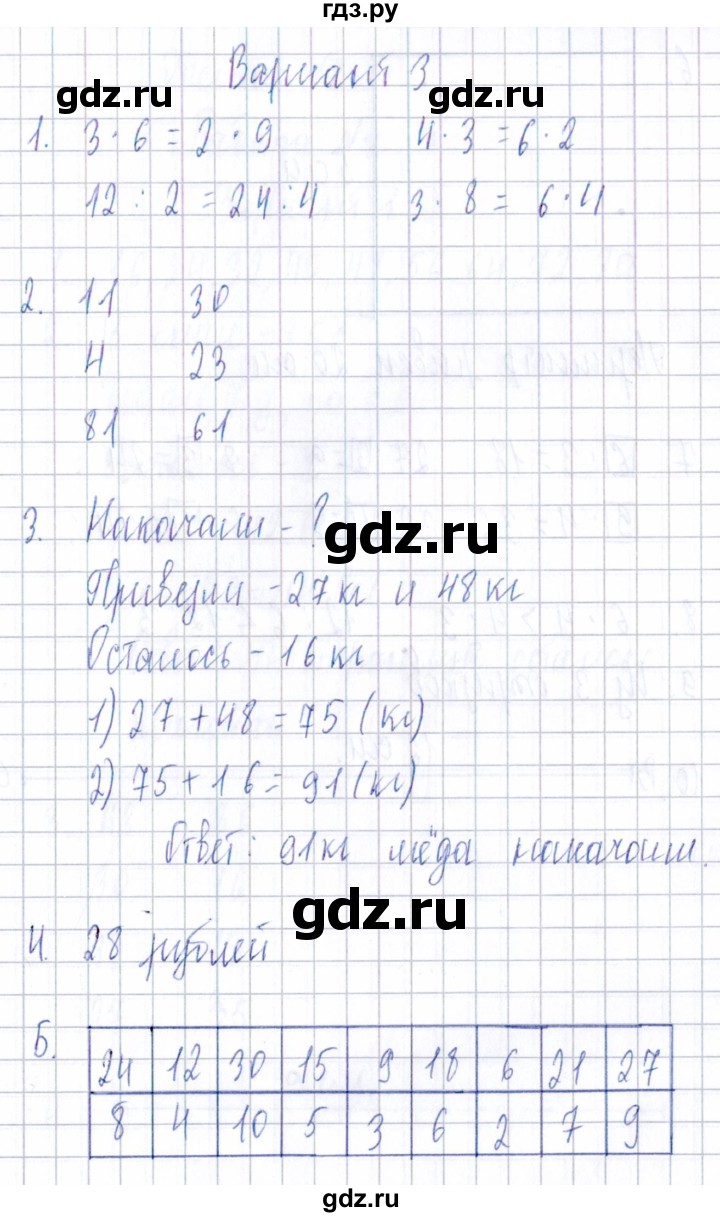 гдз.ру
Вариант 3
gdz.ru gdz.ru
1. 3 · 6 = 2 · 9 4 · 3 = 6 · 2
12 : 2 = 24 : 4 3 · 8 = 6 · 4
2. 11 30
4 23
81 61
3. Накачали - ?
gdz.ru
Привезли - 27 кг и 48 кг
Осталось - 16 кг
1) 27 + 48 = 75 (кг)
2) 75 + 16 = 91 (кг)
Ответ: 91 кг мёда накачали.
gdz.ru
4. 28 рублей
5.
24 12 30 15 9 18 6 21 27
8 4 10 5 3 6 2 7 9
gdz.ru